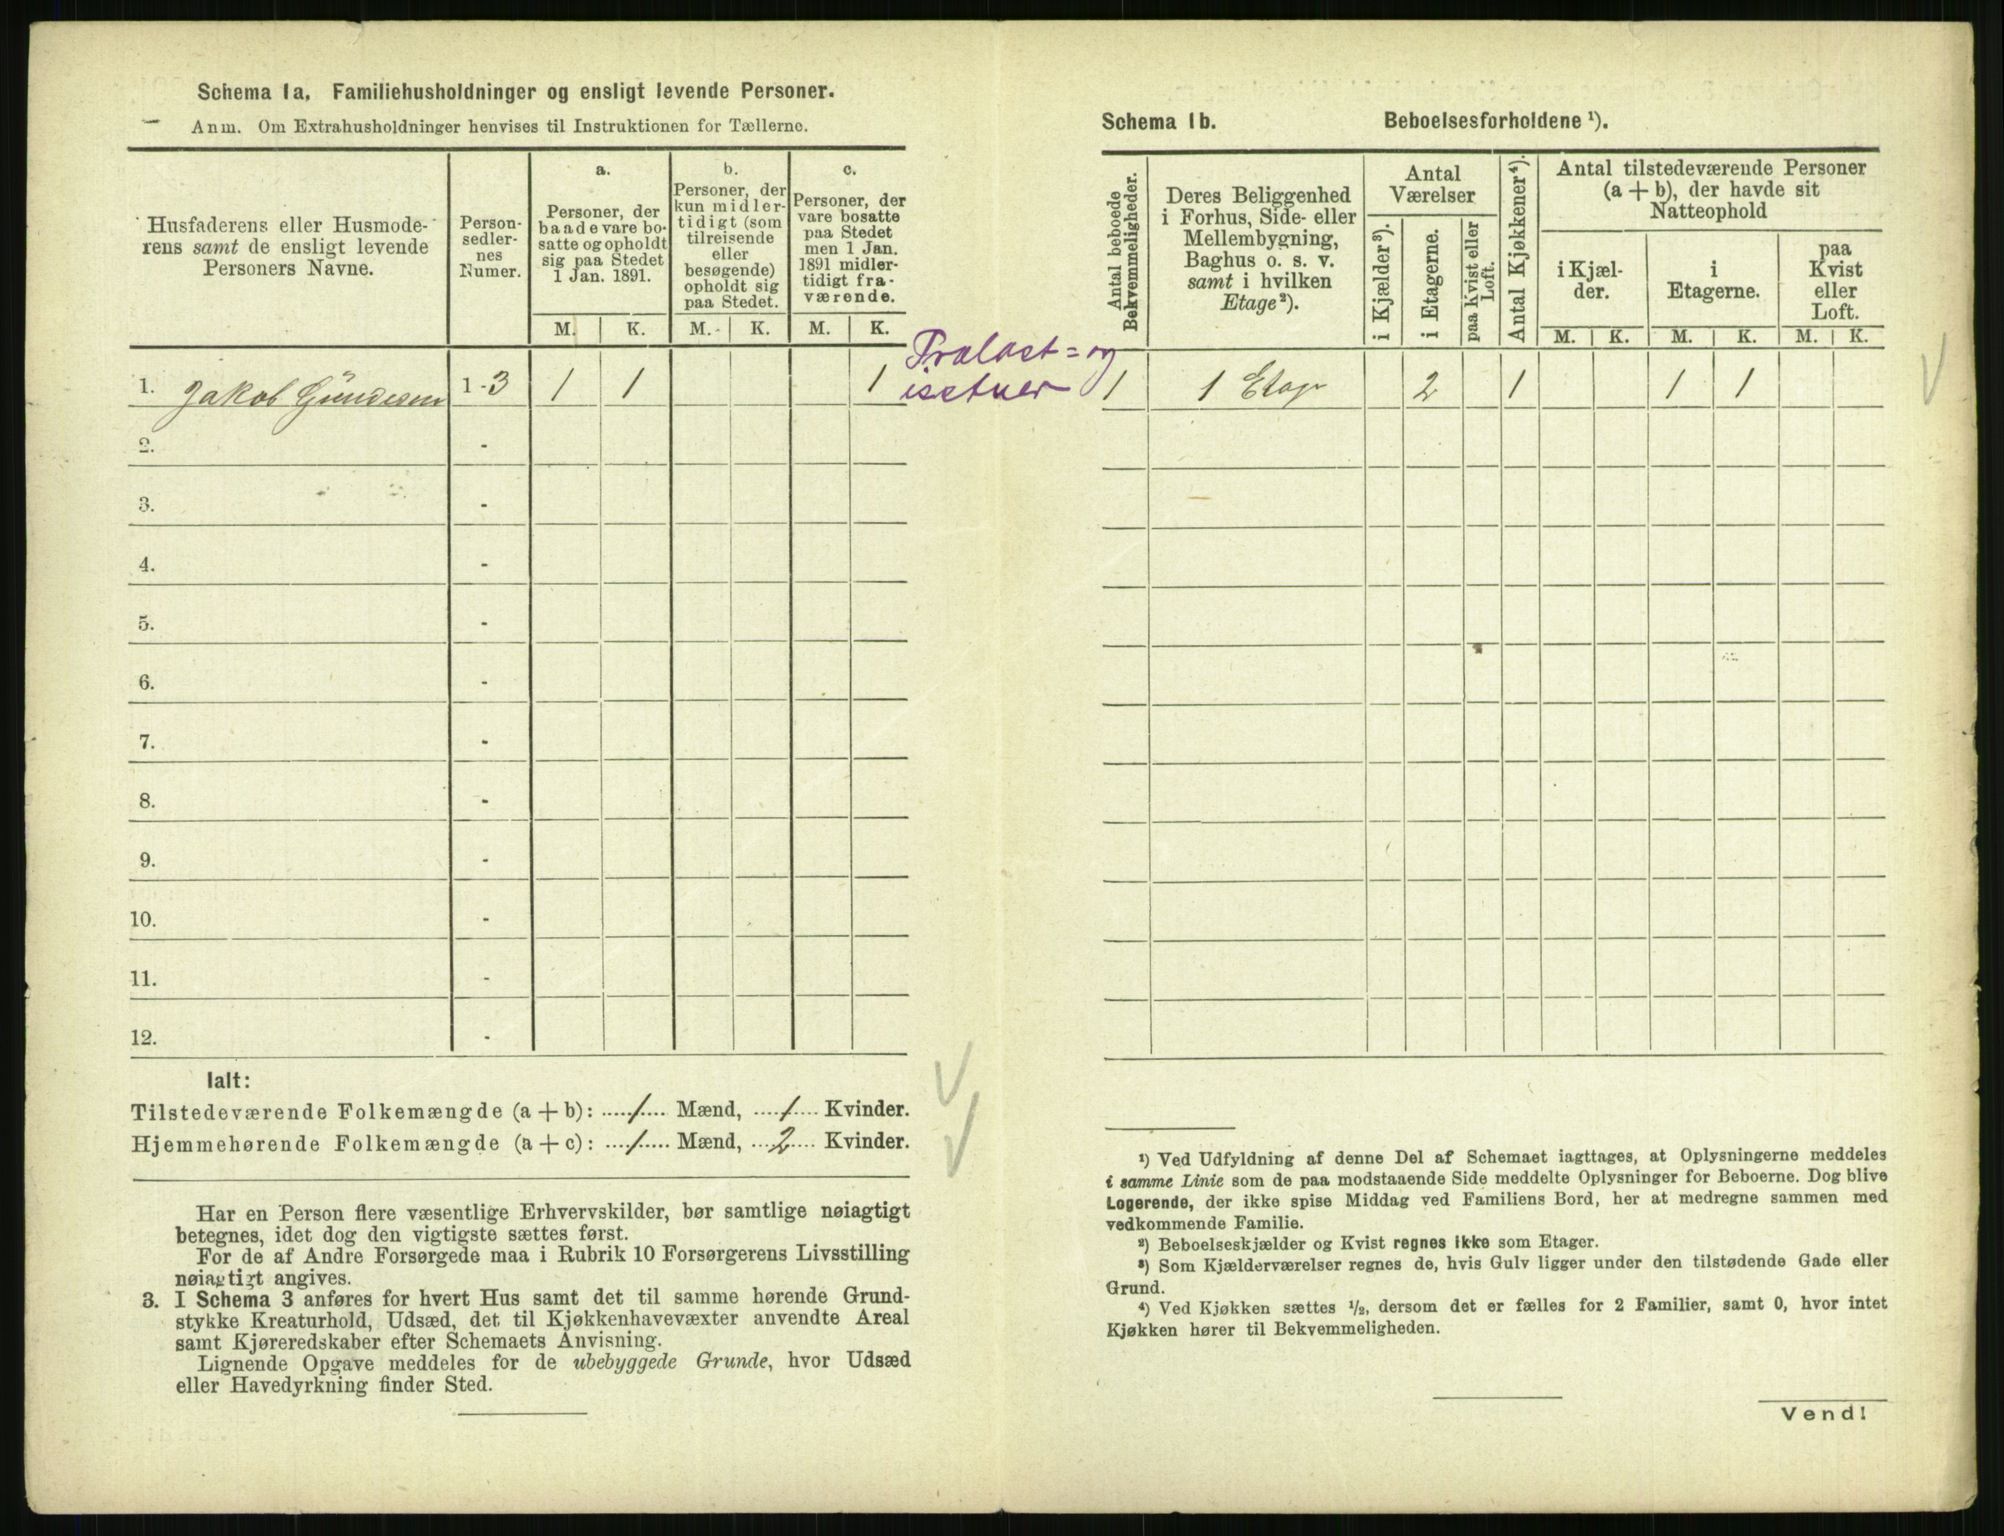 Schema 1a. Familiehusholdninger og ensligt levende Personer.
Anm. Om Extrahusholdninger henvises til Instruktionen for Tællerne.
Husfaderens eller Husmode-
rens samt de ensligt levende
Personers Navne.
Person-
sedler-
nes
Numer.
a.
Personer, der
baade vare bo-
satte og opholdt
sig paa Stedet
1 Jan. 1891.
b.
Personer, der
kun midler-
tidigt (som
tilreisende
eller
besøgende)
opholdt sig
paa Stedet.
c.
Personer, der
vare bosatte
paa Stedet
men 1 Jan.
1891 midler-
tidigt fra-
værende.
M. K. M. K. M. K.
1. Jakob Gündersen 1-3 1 1 1
og
2. -
3. -
4. -
5. -
6. -
7. -
8. -
9. -
10. -
11. -
12. -
Ialt:
Tilstedeværende Folkemængde (a + b): 1 Mænd, 1 Kvinder.
Hjemmehørende Folkemængde (a + c): 1 Mænd, 2 Kvinder.
Har en Person flere væsentlige Erhvervskilder, bør samtlige nøiagtigt
betegnes, idet dog den vigtigste sættes først.
For de af Andre Forsørgede maa i Rubrik 10 Forsørgerens Livsstilling
nøiagtigt angives.
3. I Schema 3 anføres for hvert Hus samt det til samme hørende Grund-
stykke Kreaturhold, Udsæd, det til Kjøkkenhavevæxter anvendte Areal
samt Kjøreredskaber efter Schemaets Anvisning.
Lignende Opgave meddeles for de ubebyggede Grunde, hvor Udsæd
eller Havedyrkning finder Sted.
Schema 1b. Beboelsesforholdene ¹).
Antal beboede
Bekvemmeligheder.
Deres Beliggenhed
i Forhus, Side- eller
Mellembygning,
Baghus o. s. v.
samt i hvilken
Etage²).
Antal
Værelser
i Kjælder³).
i Etagerne.
paa Kvist eller
Loft.
Antal Kjøkkener⁴).
Antal tilstedeværende Personer
(a + b), der havde sit
Natteophold
i Kjæl-
der.
i
Etagerne.
paa
Kvist
eller
Loft.
M. K. M. K. M. K.
1 1 Etage 2 1 1 1
¹) Ved Udfyldning af denne Del af Schemaet iagttages, at Oplysningerne meddeles
i samme Linie som de paa modstaaende Side meddelte Oplysninger for Beboerne. Dog blive
Logerende, der ikke spise Middag ved Familiens Bord, her at medregne sammen med
vedkommende Familie.
²) Beboelseskjælder og Kvist regnes ikke som Etager.
³) Som Kjælderværelser regnes de, hvis Gulv ligger under den tilstødende Gade eller
Grund.
⁴) Ved Kjøkken sættes ½, dersom det er fælles for 2 Familier, samt 0, hvor intet
Kjøkken hører til Bekvemmeligheden.
Vend!